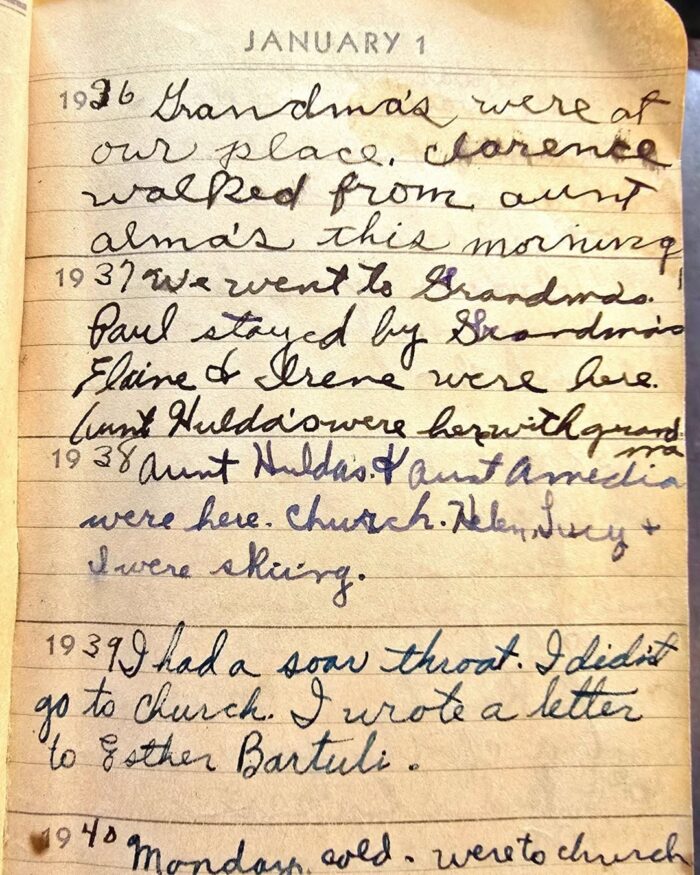 JANUARY 1
1936 Grandma's were at
our place. Clarence
walked from aunt
alma's this morning
1937 We went to Grandma's.
Paul stayed by Grandma's
Elaine & Irene were here.
(aunt Hulda's were her with grand
ma
1938 Aunt Huldas. & Aunt Amedia
were here. Church. Helen, Lucy +
I were skiing.
1939 I had a soar throat. I didn't
go to church. I wrote a letter
to Esther Bartuli.
1940 Monday, cold. were to church